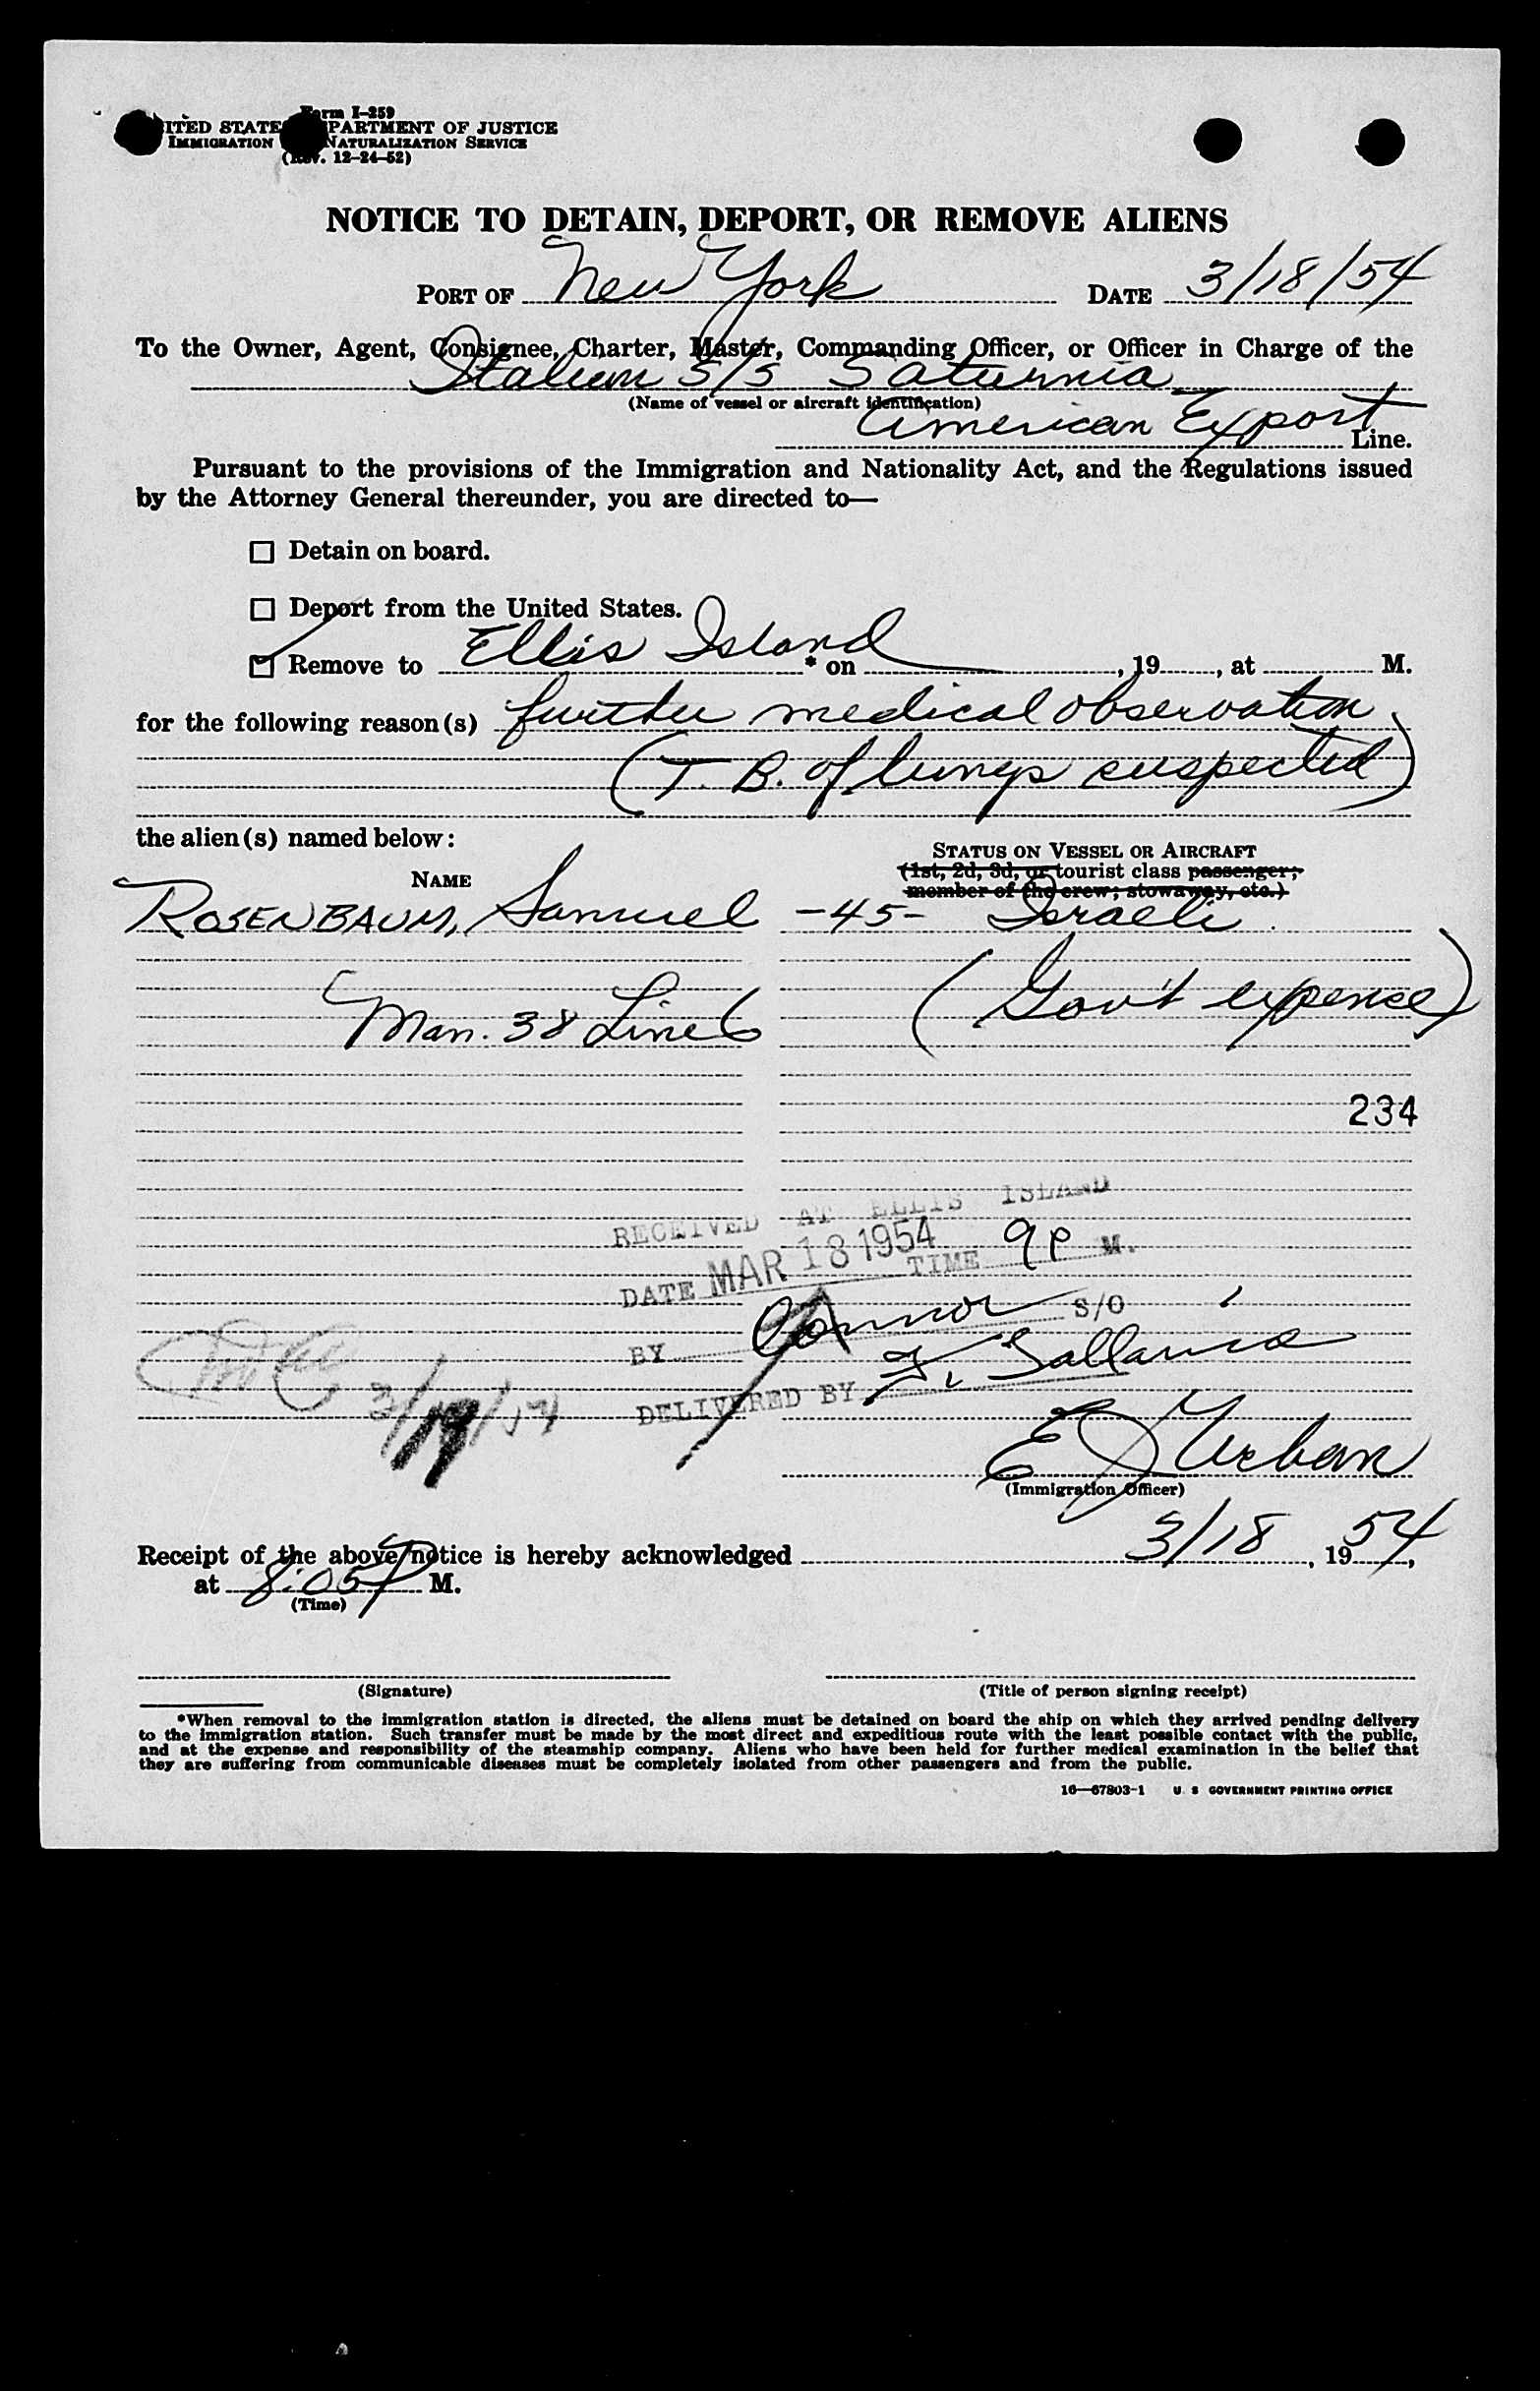 Form I-259
UNITED STATES DEPARTMENT OF JUSTICE
IMMIGRATION NATURALIZATION SERVICE
(Rev. 12-24-52)
NOTICE TO DETAIN, DEPORT, OR REMOVE ALIENS
PORT OF New York DATE 3/18/54
To the Owner, Agent, Consignee, Charter, Master, Commanding Officer, or Officer in Charge of the
Italian S/S Saturnia
(Name of vessel or aircraft identification)
American Export Line.
Pursuant to the provisions of the Immigration and Nationality Act, and the Regulations issued
by the Attorney General thereunder, you are directed to—
☐ Detain on board.
☐ Deport from the United States.
☑ Remove to Ellis Island * on , 19 , at M.
for the following reason(s) further medical observation
(T. B. of lungs suspected)
the alien(s) named below:
NAME
STATUS ON VESSEL OR AIRCRAFT
(1st, 2d, 3d, or tourist class passenger;
member of the crew; stowaway, etc.)
ROSENBAUM, Samuel -45- Israeli
Man. 38 Line 6 (Gov't expense)
234
RECEIVED AT ELLIS ISLAND
DATE MAR 18 1954 TIME 9 P M.
BY Connor S/O
DELIVERED BY
3/19/54
E J Urban
(Immigration Officer)
Receipt of the above notice is hereby acknowledged 3/18, 1954,
at 8:05 P M.
(Time)
(Signature) (Title of person signing receipt)
*When removal to the immigration station is directed, the aliens must be detained on board the ship on which they arrived pending delivery
to the immigration station. Such transfer must be made by the most direct and expeditious route with the least possible contact with the public,
and at the expense and responsibility of the steamship company. Aliens who have been held for further medical examination in the belief that
they are suffering from communicable diseases must be completely isolated from other passengers and from the public.
16—67803-1 U. S. GOVERNMENT PRINTING OFFICE